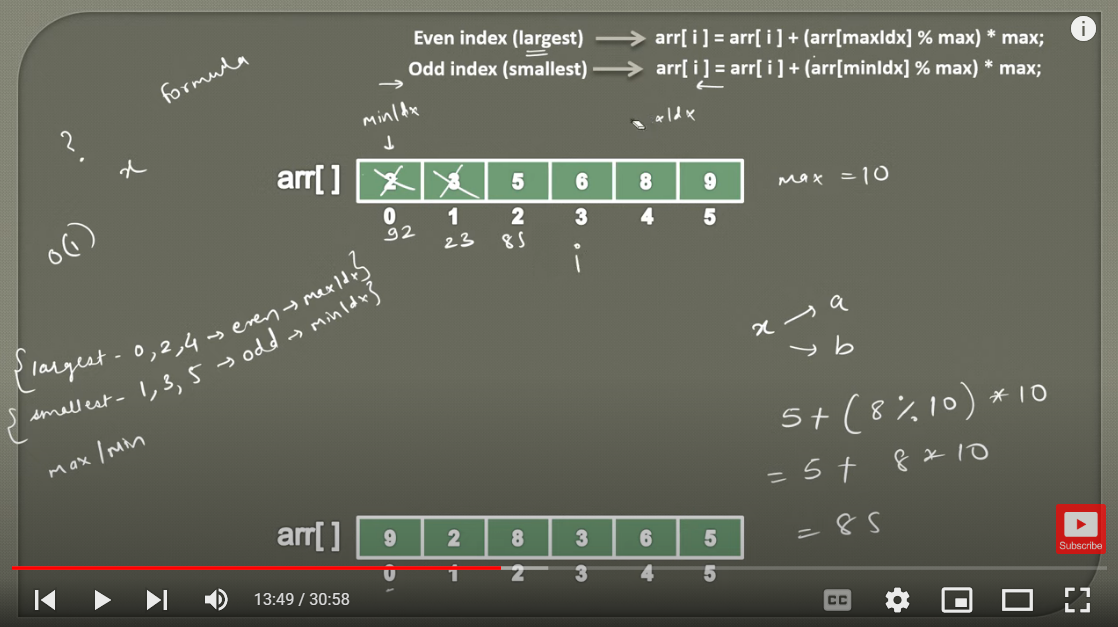 Even index (largest) → arr[ i ] = arr[ i ] + (arr[maxIdx] % max) * max;
Odd index (smallest) → arr[ i ] = arr[ i ] + (arr[minIdx] % max) * max;
formula
minIdx
xIdx
?
x
arr[] 2 3 5 6 8 9
max = 10
0 1 2 3 4 5
92 23 85
i
O(1)
{largest - 0, 2, 4 → even → maxIdx}
{smallest - 1, 3, 5 → odd → minIdx}
max/min
x → a
→ b
5 + (8 % 10) * 10
= 5 + 8 * 10
= 85
arr[] 9 2 8 3 6 5
0 1 2 3 4 5
Subscribe
13:49 / 30:58
CC